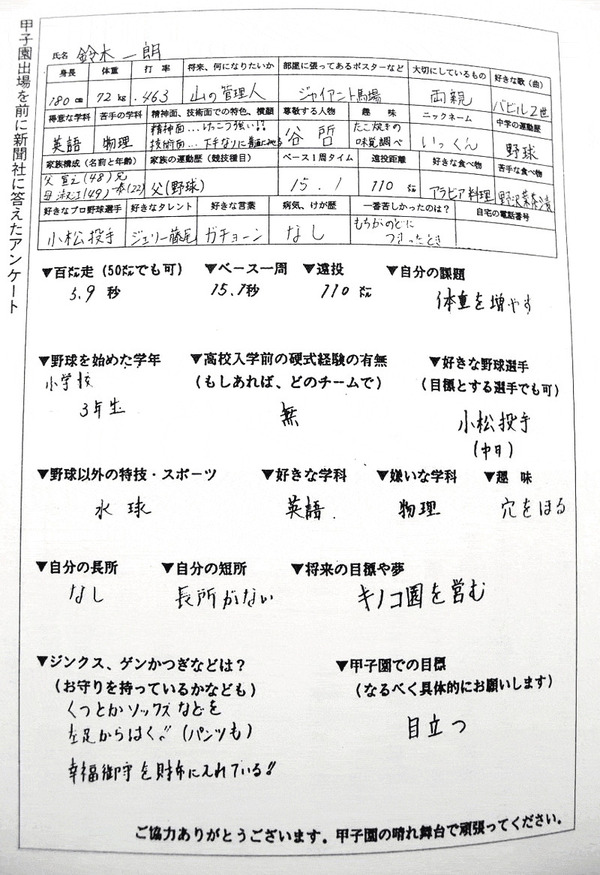 甲子園出場を前に新聞社に答えたアンケート
氏名 鈴木一朗
身長 体重 打率 将来、何になりたいか 部屋に張ってあるポスターなど 大切にしているもの 好きな歌(曲)
180cm 72kg .463 山の管理人 ジャイアント馬場 両親 バビル2世
得意な学科 苦手の学科 精神面、技術面での特色、横顔 尊敬する人物 趣味 ニックネーム 中学の運動歴
英語 物理 精神面…けっこう強い!! 谷 哲 たこ焼きの いっくん 野球
技術面… 味覚調べ
家族構成(名前と年齢) 家族の運動歴(競技種目) ベース1周タイム 遠投距離 好きな食べ物 苦手な食べ物
父 宣之(48)兄 父(野球) 15.1 110㍍ アラビア料理 野沢菜茶漬
母 淑江(49) 一泰(22)
好きなプロ野球選手 好きなタレント 好きな言葉 病気、けが歴 一番苦しかったのは? 自宅の電話番号
小松投手 ジェリー藤尾 ガチョーン なし もちがのどに
つまったとき
▼百㍍走(50㍍でも可) ▼ベース一周 ▼遠投 ▼自分の課題
5.9秒 15.1秒 110㍍ 体重を増やす
▼野球を始めた学年 ▼高校入学前の硬式経験の有無 ▼好きな野球選手
小学校 (もしあれば、どのチームで) (目標とする選手でも可)
3年生 無 小松投手
(中日)
▼野球以外の特技・スポーツ ▼好きな学科 ▼嫌いな学科 ▼趣味
水球 英語. 物理 穴をほる
▼自分の長所 ▼自分の短所 ▼将来の目標や夢
なし 長所がない キノコ園を営む
▼ジンクス、ゲンかつぎなどは? ▼甲子園での目標
(お守りを持っているかなども) (なるべく具体的にお願いします)
くつとかソックスなどを 目立つ
左足からはく!!(パンツも)
幸福御守を財布に入れている!!
ご協力ありがとうございます。甲子園の晴れ舞台で頑張ってください。